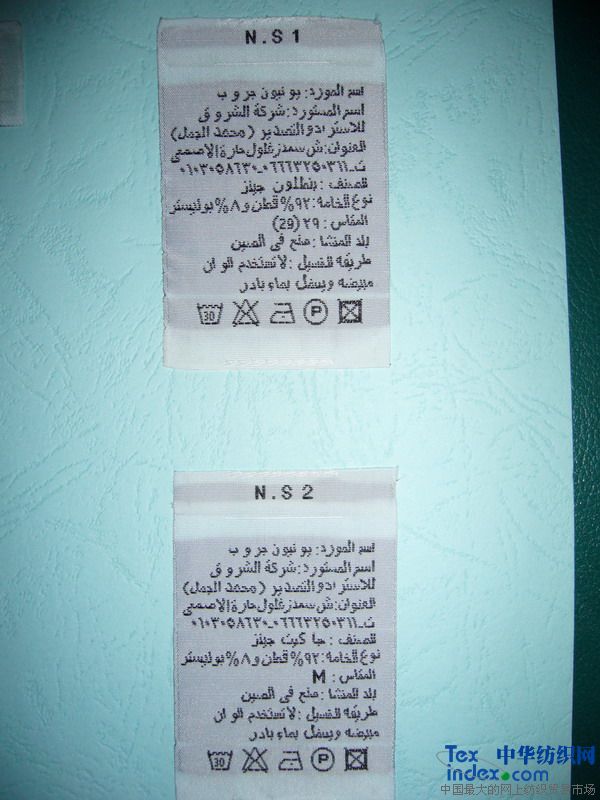 N.S 1
اسم المورد: يونيون جروب
اسم المستورد: شركة الشروق
للاستيرادو التصدير (محمد الجمل)
العنوان:ش سعدزغلول حارة الاصمعى
ت_٠٦٦٦٣٢٥٠٣١١_٠١٠٣٠٥٨٦٣٠
الصنف: بنطلون جينز
نوع الخامة: ٩٢% قطن و٨% بوليستر
المقاس: ٢٩ (29)
بلد المنشا : صنع فى الصين
طريقه الغسيل :لاتستخدم الوان
مبيضه ويغسل بماء بادر
30 P
N.S 2
اسم المورد: يونيون جروب
اسم المستورد: شركة الشروق
للاستيرادو التصدير (محمد الجمل)
العنوان:ش سعدزغلول حارة الاصمعى
ت_٠٦٦٦٣٢٥٠٣١١_٠١٠٣٠٥٨٦٣٠
الصنف: جاكيت جينز
نوع الخامة: ٩٢% قطن و٨% بوليستر
المقاس : M
بلد المنشا : صنع فى الصين
طريقه الغسيل :لاتستخدم الوان
مبيضه ويغسل بماء بادر
30 P
Tex 中华纺织网
index.com
中国最大的网上纺织贸易市场